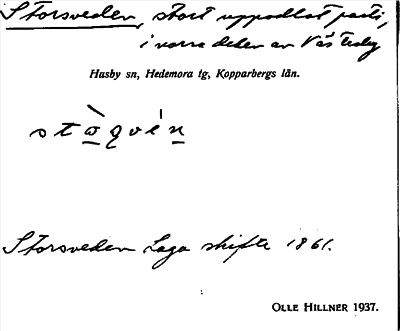 Storsveden, stort uppodlat parti,
i norra delen av Västerby
Husby sn, Hedemora tg, Kopparbergs län.
Storsveden Laga skifte 1861.
OLLE HILLNER 1937.